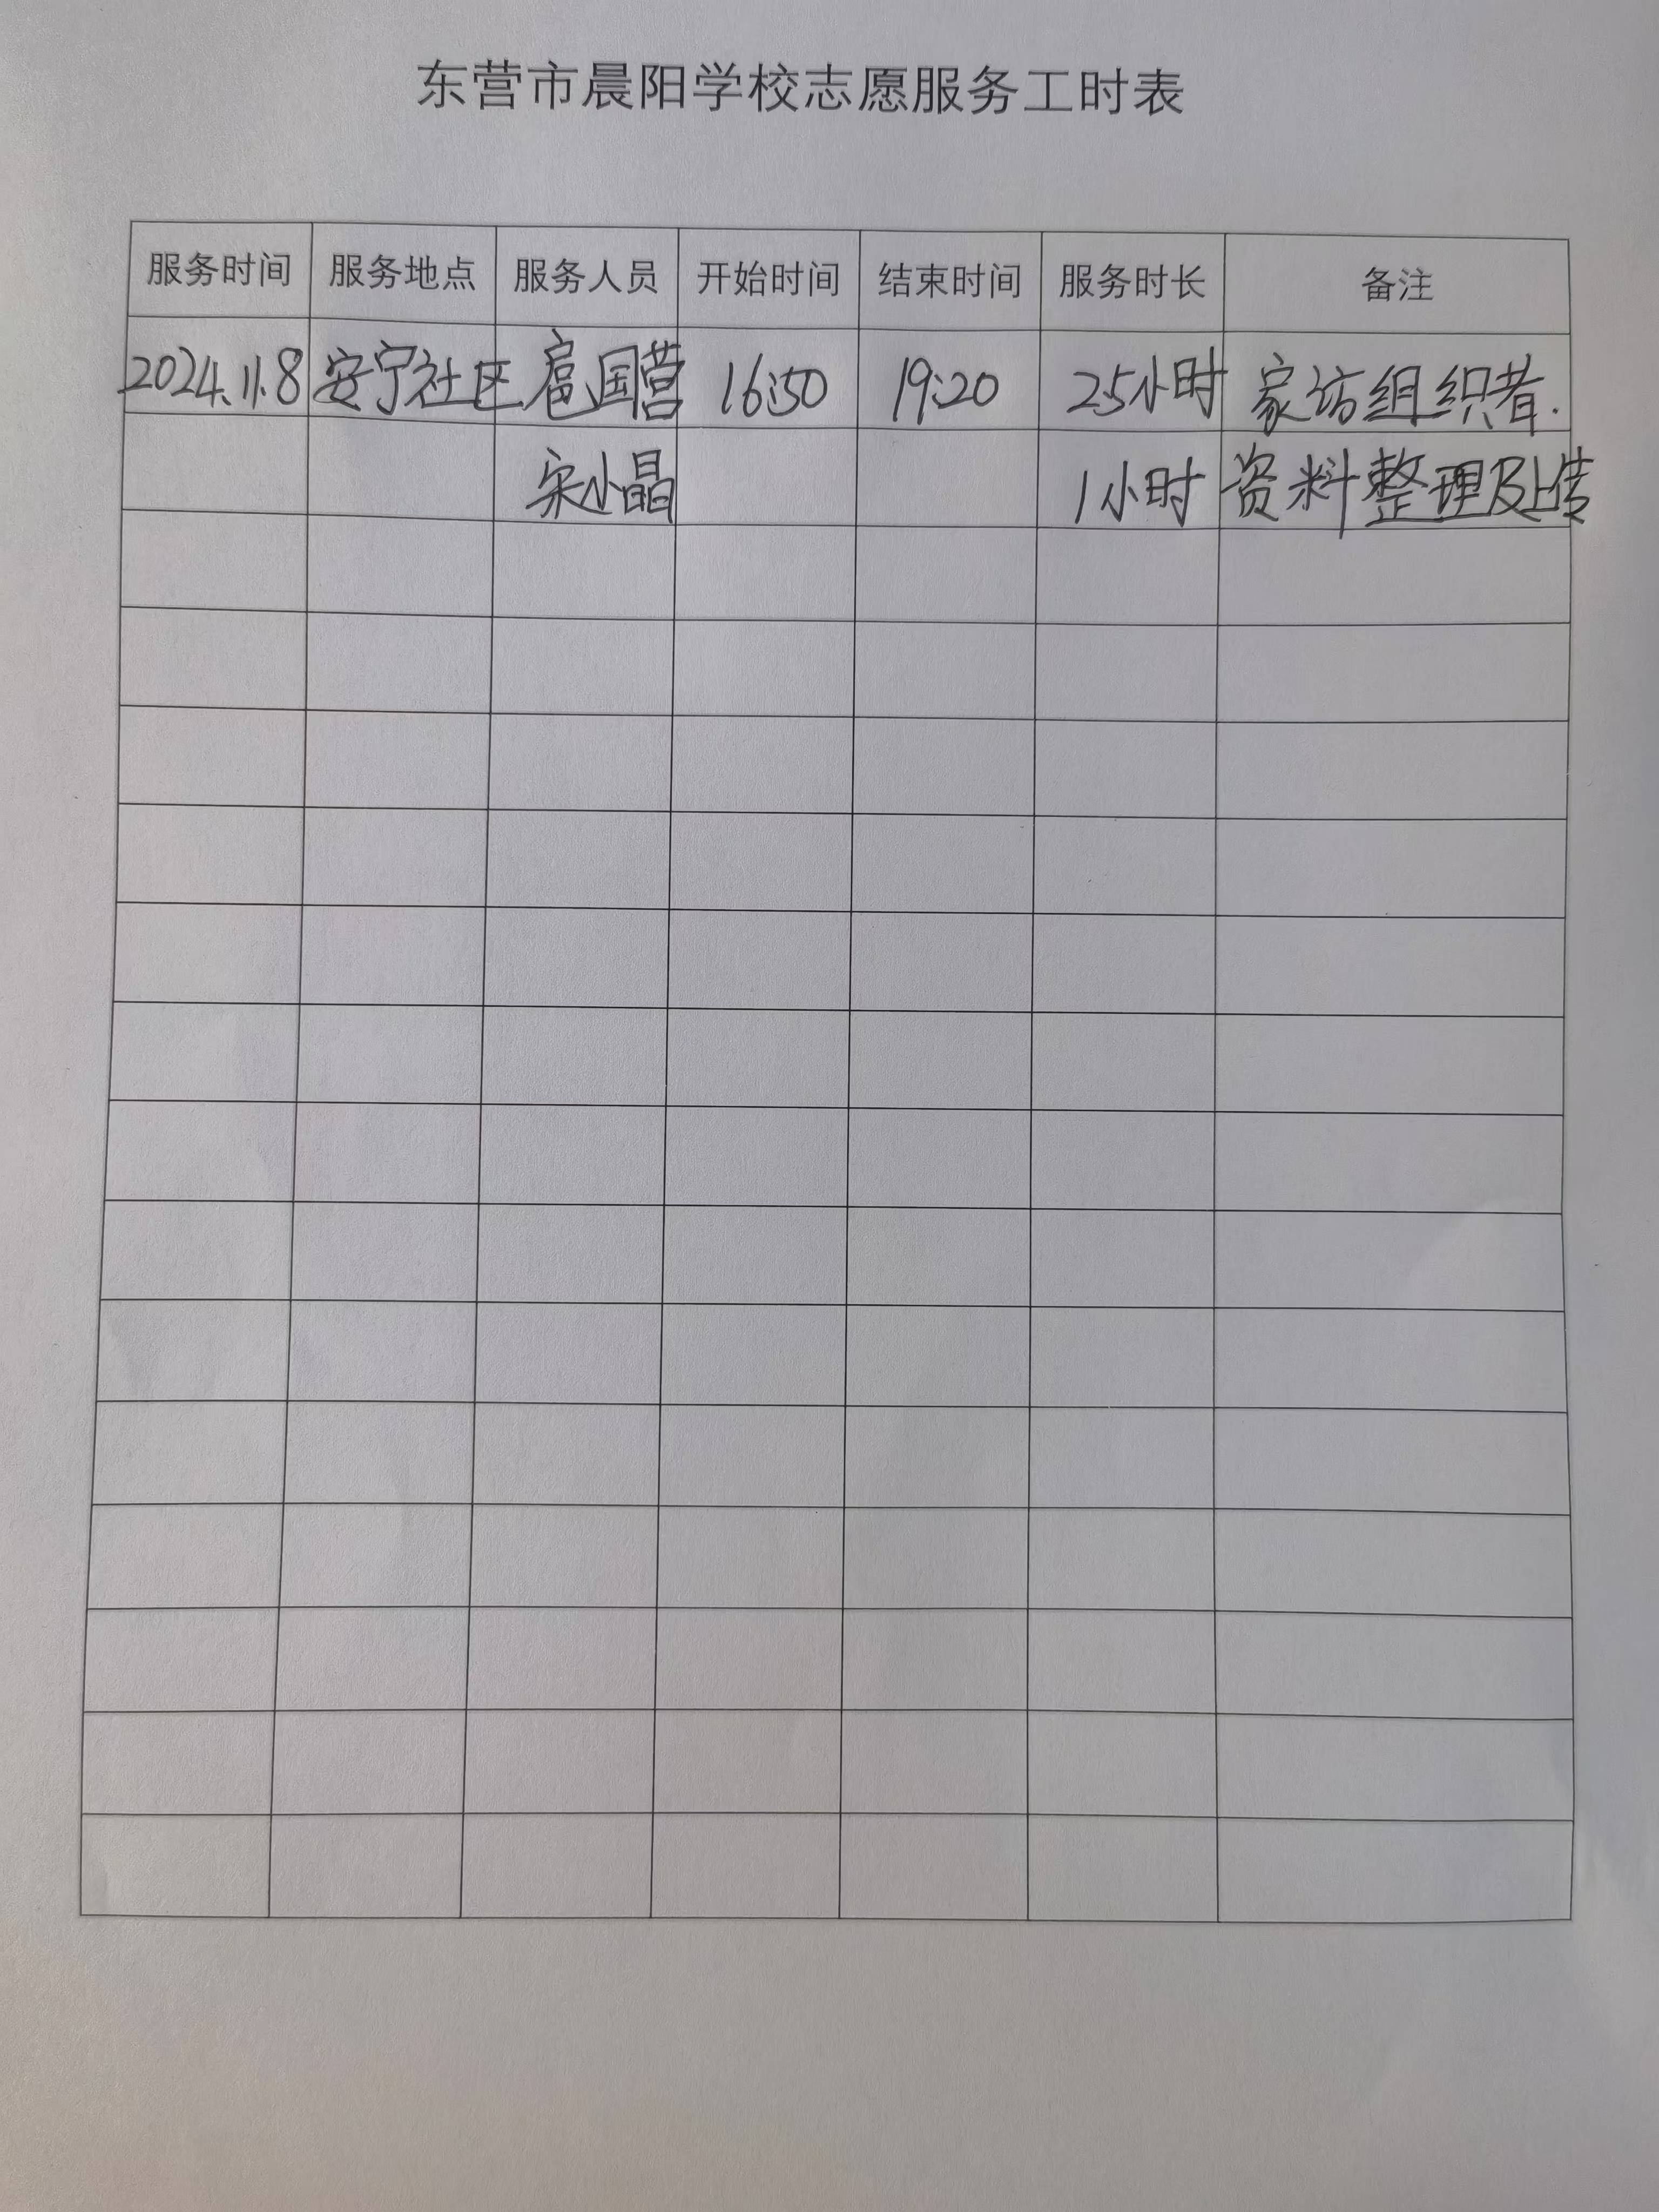 东营市晨阳学校志愿服务工时表
服务时间 服务地点 服务人员 开始时间 结束时间 服务时长 备注
2024.11.8 安宁社区 扈国营 16:50 19:20 2.5小时 家访组织者.
宋小晶 1小时 资料整理及上传